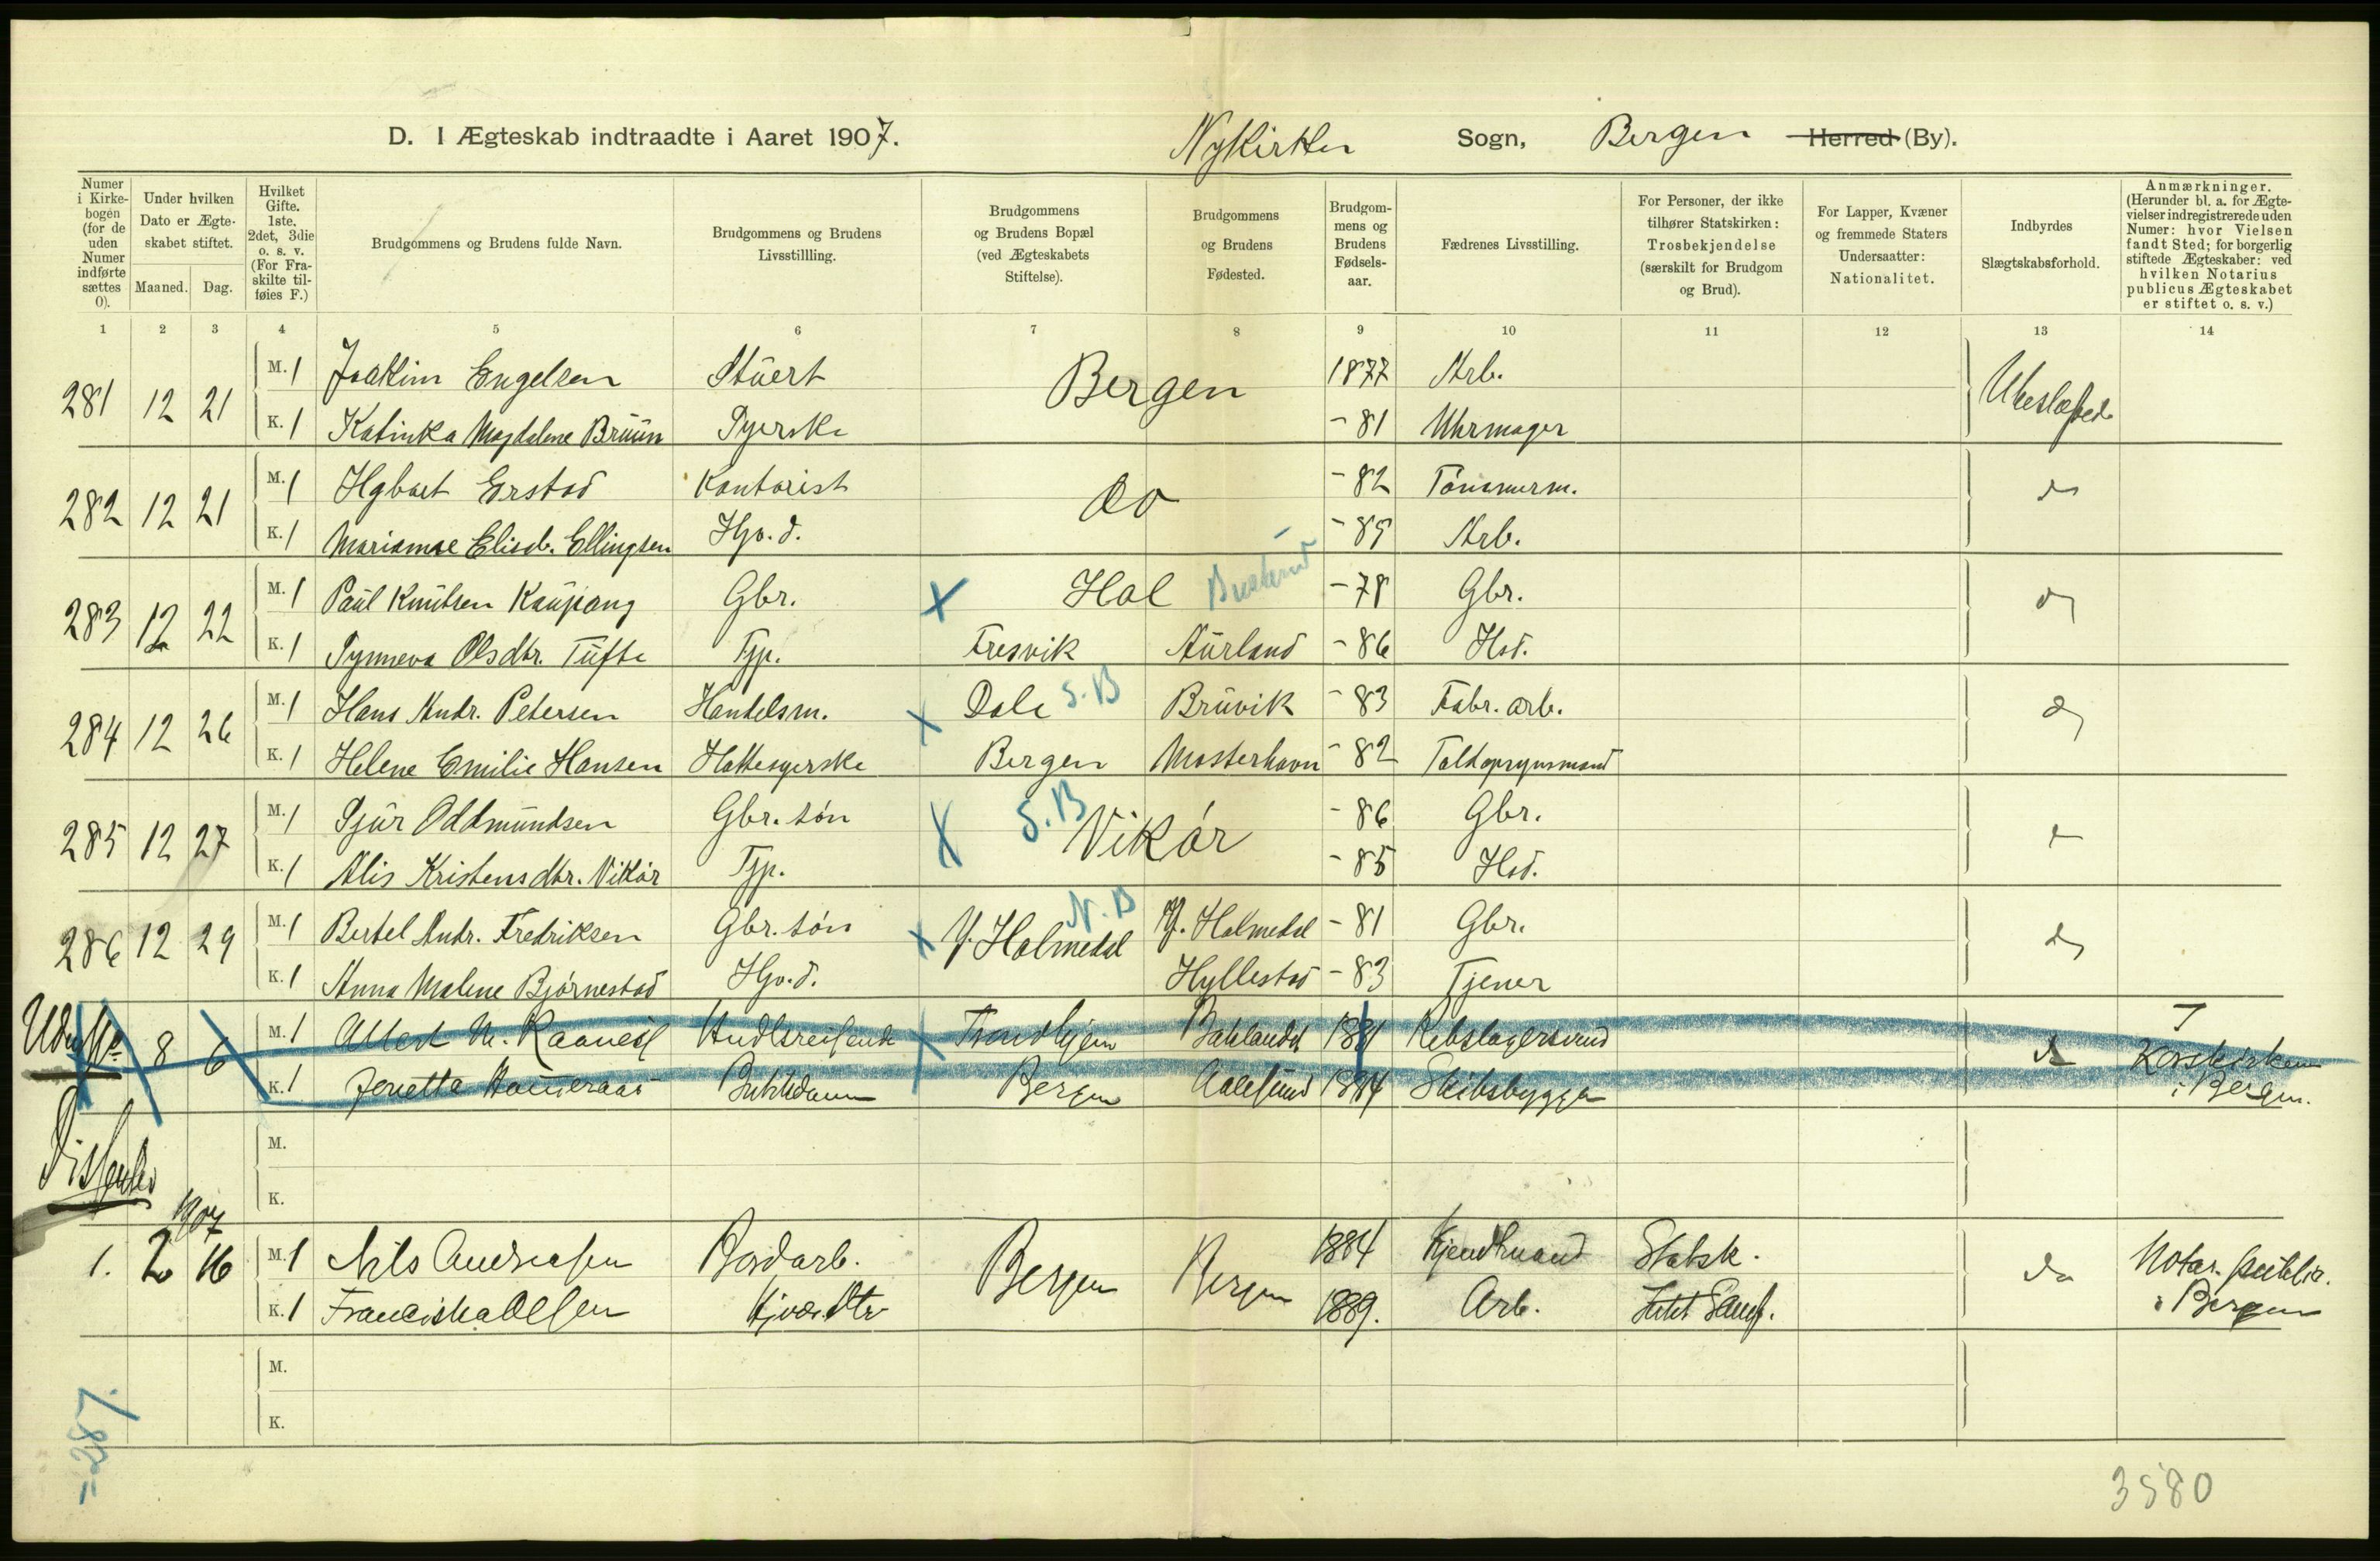 D. I Ægteskab indtraadte i Aaret 1907. Nykirken Sogn, Bergen Herred (By).
Numer i Kirkebogen (for de uden Numer indførte sættes 0).
Under hvilken Dato er Ægteskabet stiftet.
Maaned. Dag.
Hvilket Gifte. 1ste, 2det, 3die o. s. v. (For Fraskilte tilføies F.)
Brudgommens og Brudens fulde Navn.
Brudgommens og Brudens Livsstillling.
Brudgommens og Brudens Bopæl (ved Ægteskabets Stiftelse).
Brudgommens og Brudens Fødested.
Brudgommens og Brudens Fødselsaar.
Fædrenes Livsstilling.
For Personer, der ikke tilhører Statskirken: Trosbekjendelse (særskilt for Brudgom og Brud).
For Lapper, Kvæner og fremmede Staters Undersaatter: Nationalitet.
Indbyrdes Slægtskabsforhold.
Anmærkninger. (Herunder bl. a. for Ægtevielser indregistrerede uden Numer: hvor Vielsen fandt Sted; for borgerlig stiftede Ægteskaber: ved hvilken Notarius publicus Ægteskabet er stiftet o. s. v.)
1 2 3 4 5 6 7 8 9 10 11 12 13 14
281 12 21 M. 1 Joakim Engelsen Stüert Bergen 1877 Arb. Ubeslægtede
K. 1 Katinka Magdalene Brüün Syerske - 81 Uhrmager
282 12 21 M. 1 Hgbart Erstad Kontorist do - 82 Tømmerm. do
K. 1 Marianne Elisab. Ellingsen Hjv. d. - 89 Arb.
283 12 22 M. 1 Paül Knütsen Kaüpang Gbr. X Hol Buskerud - 78 Gbr. do
K. 1 Synneva Olsdtr. Tüfte Tjp. Fresvik Aürland - 86 Hsd.
284 12 26 M. 1 Hans Andr. Petersen Handelsm. X Dale S.B Brüvik - 83 Fabr. arb. do
K. 1 Helene Emilie Hansen Hattesyerske Bergen Mosterhavn - 82 Toldopsynsmand
285 12 27 M. 1 Sjür Oddmündsen Gbr. søn X S.B Vikør - 86 Gbr.
K. 1 Alis Kristensdtr. Vikør Tjp. - 85 Hsd.
286 12 29 M. 1 Bertel Andr. Fredriksen Gbr. søn X Y. Holmedal N.B Y. Holmedal - 81 Gbr. do
K. 1 Anna Malene Bjørnestad Hjv. d. Hyllestad - 83 Tjener
8 6 M. 1 Albert M. Handlsreisende X Trondhjem Baklandet 1881 Rebslagersvend do Korskirken
K. 1 Jenetta Butikdame Bergen Aalesund 1884 Skibsbygger i Bergen.
M.
Dissenter
K.
1907
1. 2 16 M. 1 Nils Andreasen Bordarb. Bergen Bergen 1884 Statsk. do Notar. public.
K. 1 Franciska Olsen Hjv. Dtr 1889. Arb. i Bergen
M.
K.
= 287.
3580